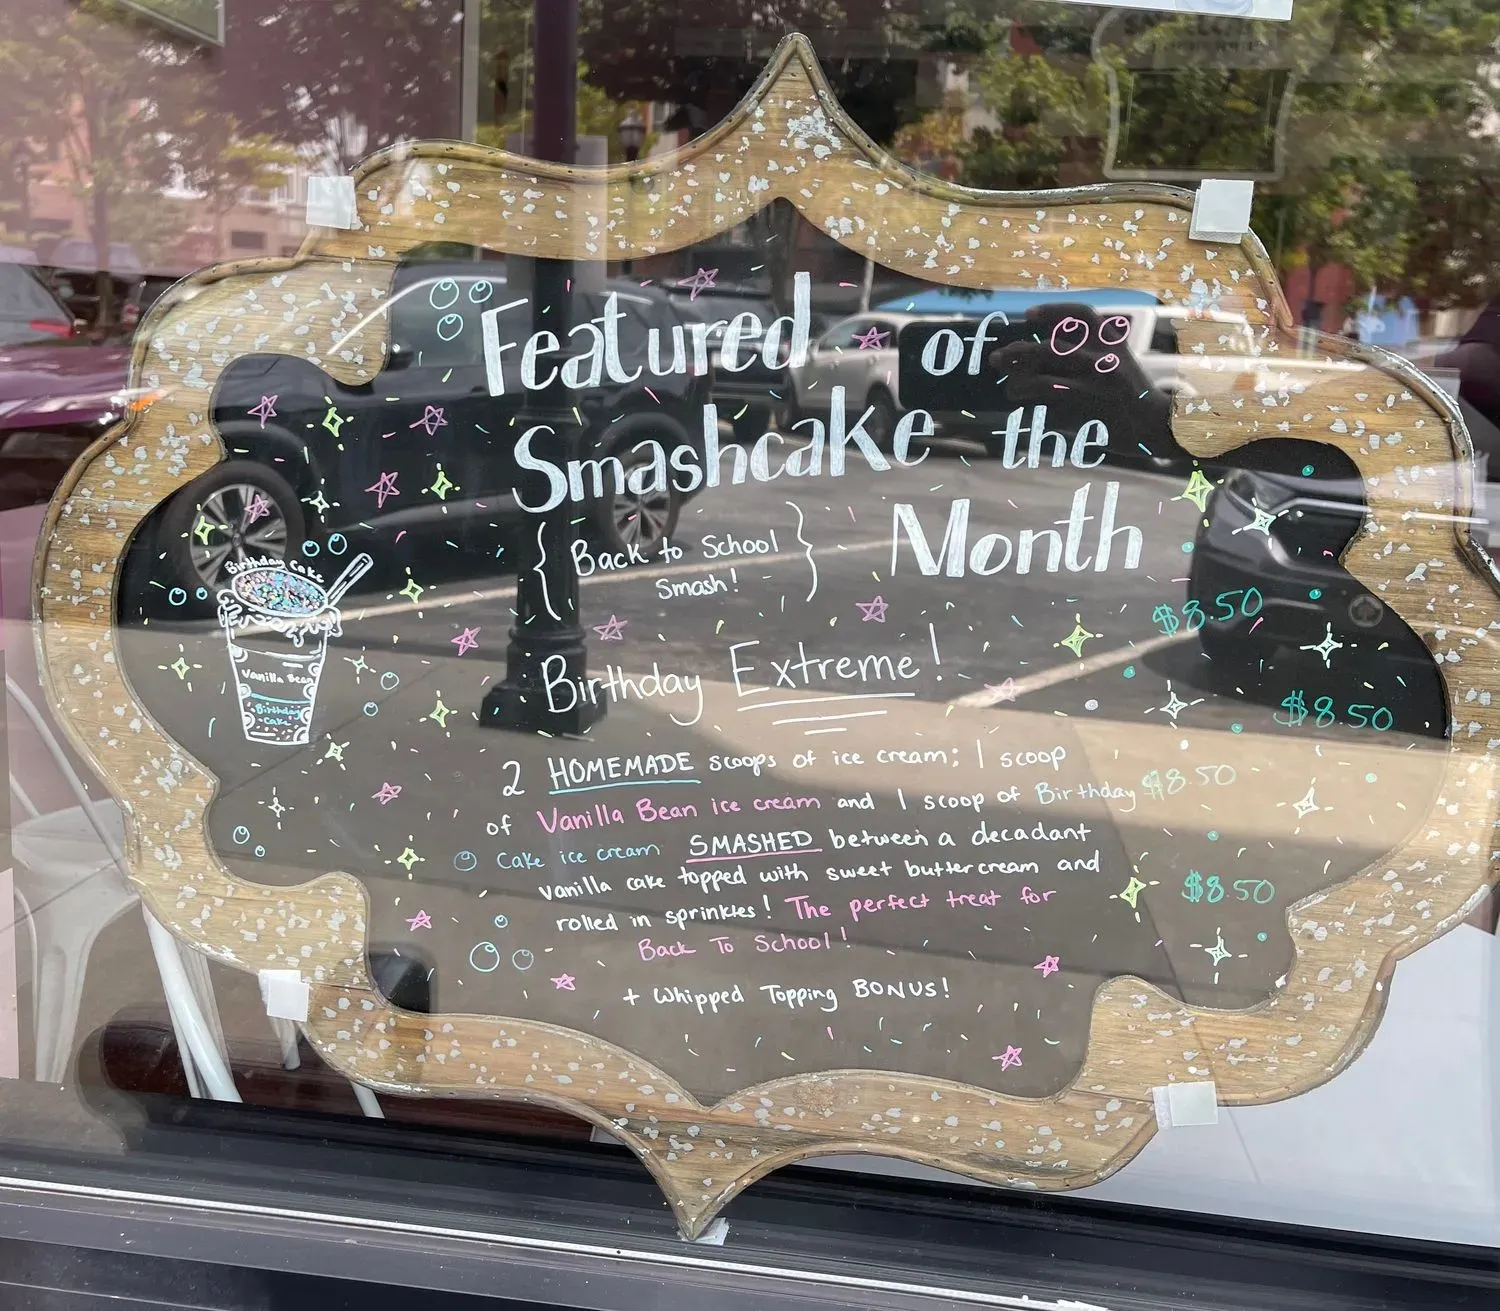 Featured of
Smashcake the
Month
{Back to School
Smash!}
$8.50
Birthday Extreme!
$8.50
2 HOMEMADE scoops of ice cream; 1 scoop
of Vanilla Bean ice cream and 1 scoop of Birthday $8.50
Cake ice cream SMASHED between a decadant
vanilla cake topped with sweet buttercream and
$8.50
rolled in sprinkles! The perfect treat for
Back To School!
+ Whipped Topping BONUS!
Birthday Cake
Vanilla Bean
Birthday
Cake